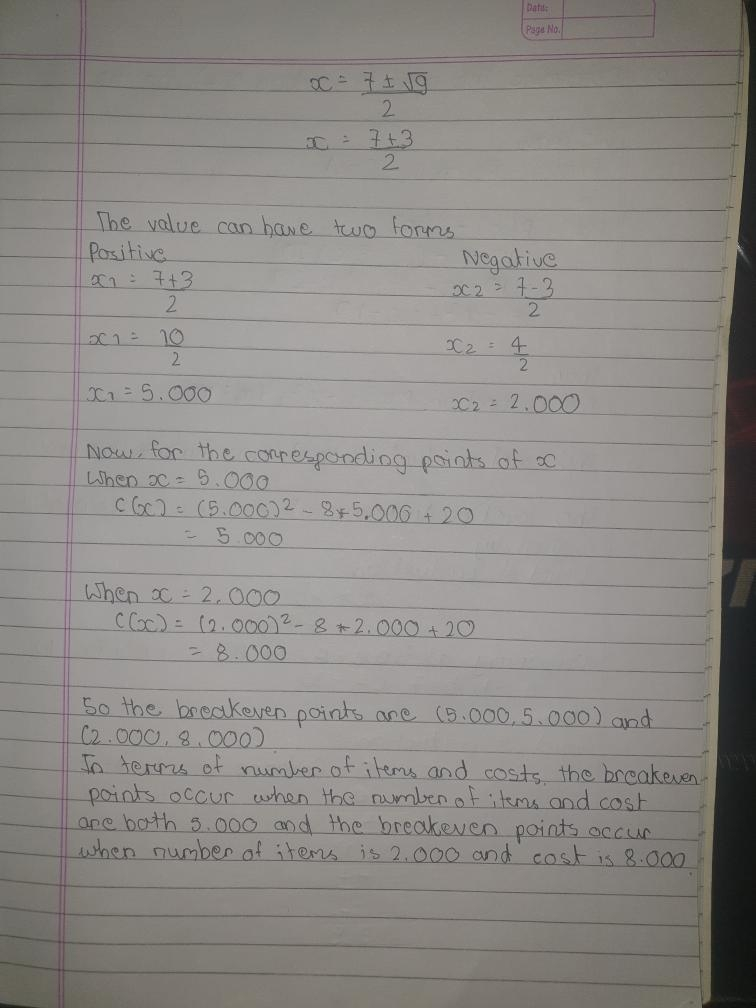 Date:
Page No.
x = 7 ± √9 / 2
x = 7+3 / 2
The value can have two forms
Positive
Negative
x1 = 7+3 / 2
x2 = 7-3 / 2
x1 = 10 / 2
x2 = 4 / 2
x1 = 5.000
x2 = 2.000
Now, for the corresponding points of x
When x = 5.000
C(x) = (5.000)² - 8*5.000 + 20
= 5.000
When x = 2.000
C(x) = (2.000)² - 8 * 2.000 + 20
= 8.000
So the breakeven points are (5.000, 5.000) and
(2.000, 8.000)
In terms of number of items and costs, the breakeven
points occur when the number of items and cost
are both 5.000 and the breakeven points occur
when number of items is 2.000 and cost is 8.000.